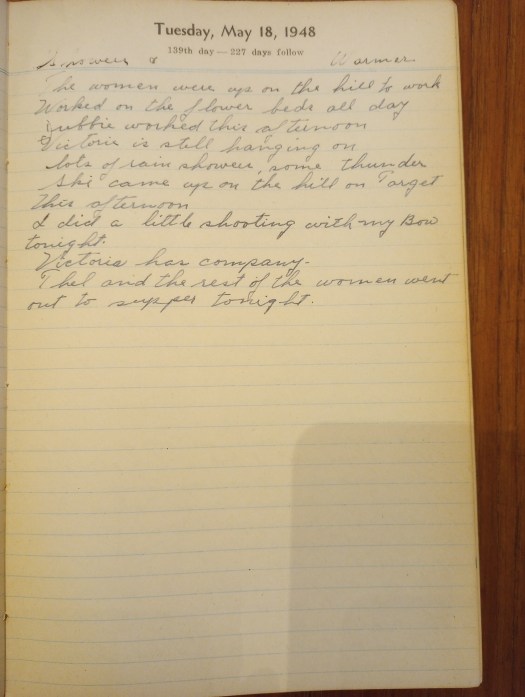 Tuesday, May 18, 1948
139th day — 227 days follow
Warmer
The women were up on the hill to work
Worked on the flower beds all day
worked this afternoon
Victoria is still hanging on
lots of rain shower, some thunder
Ski came up on the hill on Target
this afternoon
I did a little shooting with my Bow
tonight.
Victoria has company.
Thel and the rest of the women went
out to supper tonight.